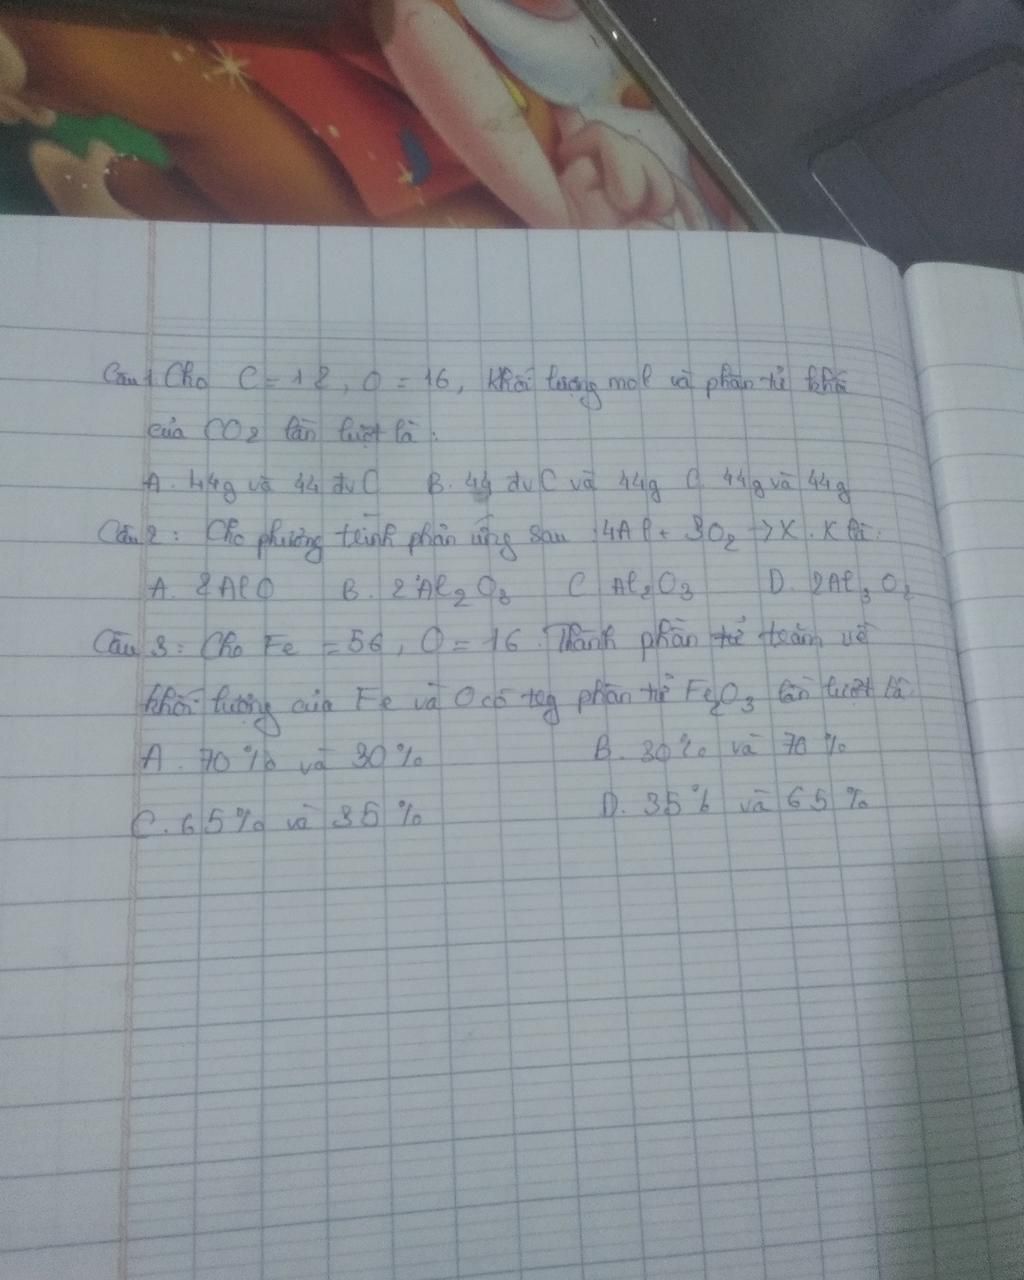 Câu 1. Cho C = 12, O = 16, khối lượng mol và phân tử khối
của CO2 lần lượt là:
A. 44g và 44 đvC B. 44 đvC và 44g C. 44g và 44g
Câu 2: Cho phương trình phản ứng sau: 4Al + 3O2 -> X. X là:
A. 2AlO B. 2Al2O3 C Al2O3 D. 2Al3O2
Câu 3: Cho Fe = 56, O = 16. Thành phần trăm về
khối lượng của Fe và O có tog phân tử Fe2O3 lần lượt là
A. 70% và 30% B. 30% và 70%
C. 65% và 35% D. 35% và 65%